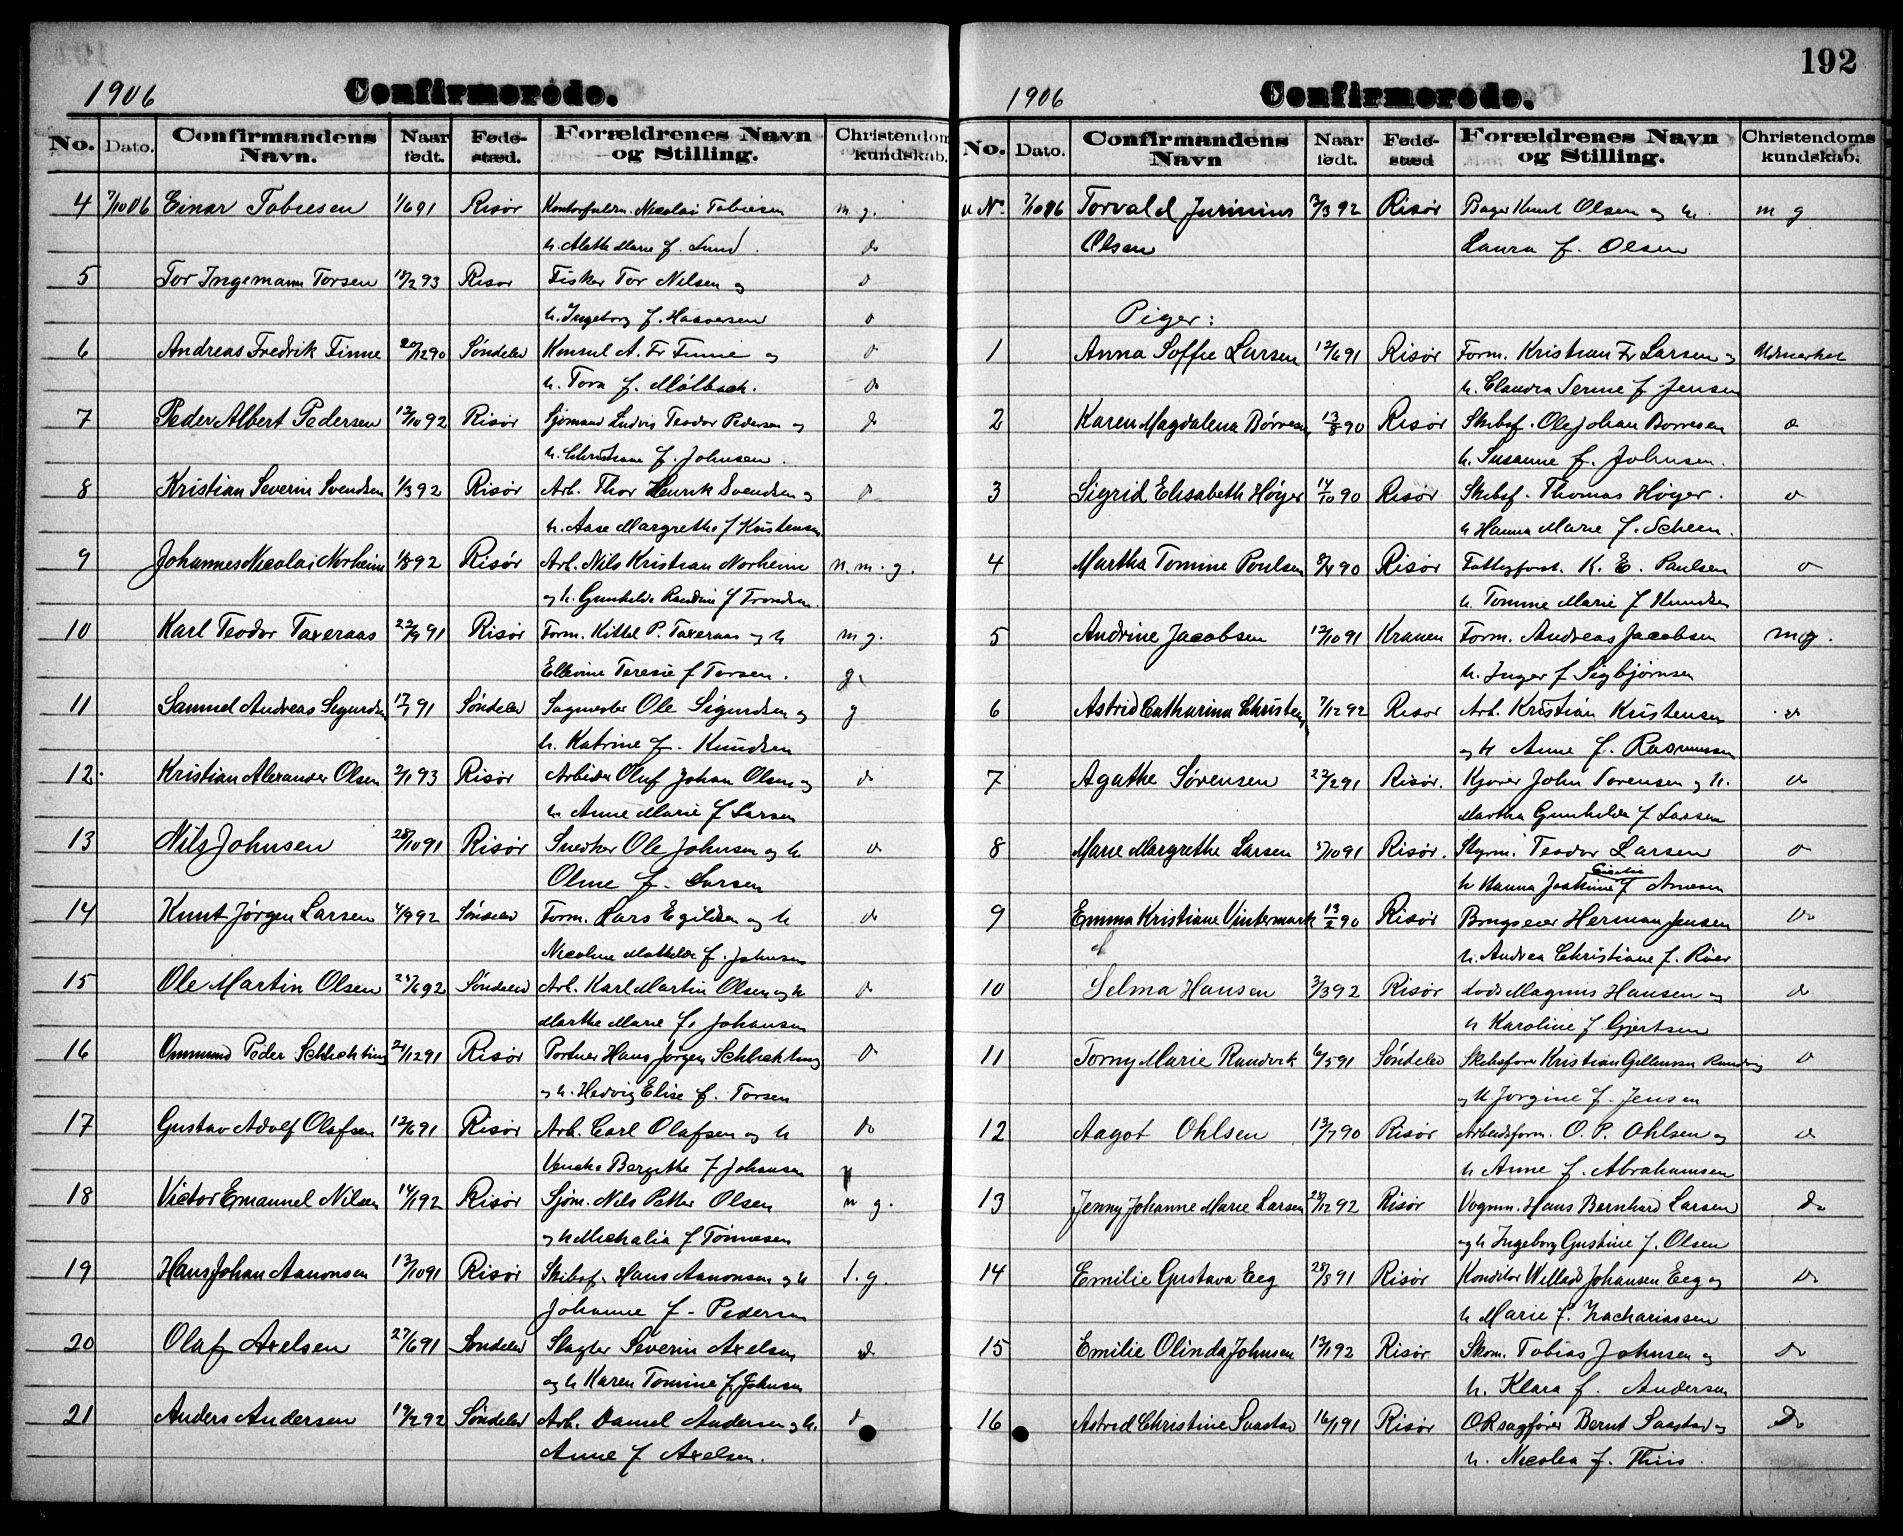 1906 Confirmerede.
No. Dato. Confirmandens Navn. Naar født. Føde-stæd. Forældrenes Navn og Stilling. Christendoms kundskab.
4 7/10 06 Einar Tobiesen 1/6 91 Risør Nicolai Tobiesen m g.
h. Marie f. Lund. do
5 Tor Ingemann Torsen 18/2 93 Risør Fisker Tor Nilsen og o
h. Ingeborg f. Haaversen o
6 Andreas Fredrik Finne 20/12 90 Søndeled Konsul A. Fr Finne og o
h. Tora f. Mølbach. do
7 Peder Albert Pedersen 12/10 92 Risør Sjømand Ludvig Teodor Pedersen og do
h. Christiane f. Johnsen.
8 Kristian Severin Svendsen 1/3 92 Risør Arb. Thor Henrik Svendsen og o
h. Aase Margrethe f Kristensen
9 Johannes Nicolai Norheim 1/8 92 Risør Arb. Nils Kristian Norheim n. m. g.
og h. Gunhilde Randine f Trondsen.
10 Karl Teodor Taxeraas 22/9 91 Risør Form. Kittel P. Taxeraas og h m g.
Ellevine Teresie f Torsen. g.
11 Samuel Andreas Sigurdsen 17/7 91 Søndeled Sagmester Ole Sigurdsen og g
h. Katrine f. Knudsen
12. Kristian Alexander Olsen 2/1 93 Risør Arbeider Oluf Johan Olsen og do
h. Anne Marie f Larsen
13 Nils Johnsen 28/10 91 Risør Snedker Ole Johnsen og h o
Oline f. Larsen
14 Knut Jørgen Larsen 4/9 92 Søndeled Form. Lars Egildsen og h do
Nicoline Mathilde f. Johnsen
15 Ole Martin Olsen 25/6 92 Søndeled Arb. Karl Martin Olsen og h do
Marthe Marie f. Johansen
16 Ommund Peder Schlichting 21/12 91 Risør Portner Hans Jørgen Schlichting o
og h. Hedvig Elise f. Torsen
17 Gustav Adolf Olafsen 12/6 91 Risør Arb. Carl Olafsen og h do
Bergithe f Johansen
18 Victor Emanuel Nilsen 14/1 92 Risør Sjøm. Nils Petter Olsen n g.
og h Michalia f Tønnesen
19 Hans Johan Aanonsen 12/10 91 Risør Skibsf. Hans Aanonsen og h T. g.
Johanne f. Pedersen
20 Olaf Axelsen 27/6 91 Søndeled Slagter Severin Axelsen do
og h Karen Tomine f Johnsen
21 Anders Andersen 19/2 92 Søndeled Arb. Daniel Andersen og h. do
Anne f Axelsen.
192
1906 Confirmerede.
No. Dato. Confirmandens Navn Naar født. Føde-stæd Forældrenes Navn og Stilling. Christendoms kundskab.
u No. 7/10 06 Torvald Jurinius 2/3 92 Risør Bager Knut Olsen og h. m g
Olsen Laura f. Olsen
Piger:
1 Anna Soffie Larsen 12/6 91 Risør Form. Kristian Fr Larsen og Udmerket
h. Claudia Serine f Jensen
2 Karen Magdalena Børresen 13/8 90 Risør Skibsf. Ole Johan Børresen o
h. Susanne f. Johnsen.
3 Sigrid Elisabeth Høyer 14/10 90 Risør Skibsf. Thomas Høyer. o
h Hanna Marie f. Scheen.
4 Martha Tomine Poulsen 90 Risør Fattigforst. K. E. Paulsen o
h. Tomine Marie f Knudsen
5 Andrine Jacobsen 12/10 91 Kranen Form. Andreas Jacobsen m g.
h. Inger f Sigbjørnsen
6 Astrid Catharina Christensen 7/12 92 Risør Arb. Kristian Kristensen o
og h Anne f. Rasmussen
7 Agathe Sørensen 22/2 91 Risør. Kjører John Sørensen og h. o
Martha Gunhilde f Larsen
8 Marie Margrethe Larsen 5/10 91 Risør. Styrm. Teodor Larsen o
h Hanna Joakine Cicilie f Arnesen
9 Emma Kristiane Vintermark 13/2 90 Risør Brugseier Herman Jensen Do
h. Andrea Christiane f. Røer
10 Selma Hansen 3/3 92 Risør Lods Magnus Hansen og do
h Karoline f Gjertsen
11 Torny Marie Randvik 6/5 91 Søndeled Skibsfører Kristian Randvig o
og h Jørgine f. Jensen
12 Aagot Ohlsen 13/7 90 Risør Arbeidsform. O. P. Ohlsen og do
h Anne f. Abrahamsen
13 Jenny Johanne Marie Larsen 28/12 92 Risør Vognm. Hans Bernhard Larsen Do
og h Ingeborg Gustine f. Olsen
14 Emilie Gustava Eeg 28/8 91 Risør Konditor Willads Johansen Eeg og Do
h Marie f. Zachariassen
15 Emilie Olinda Johnsen 12/1 92 Risør Skom. Tobias Johnsen og Do
h. Klara f. Andersen
16 Astrid Christine Saastad 16/1 91 Risør O.R.sagfører Bernt Saastad og Do
h. Nicolea f. Thiis.